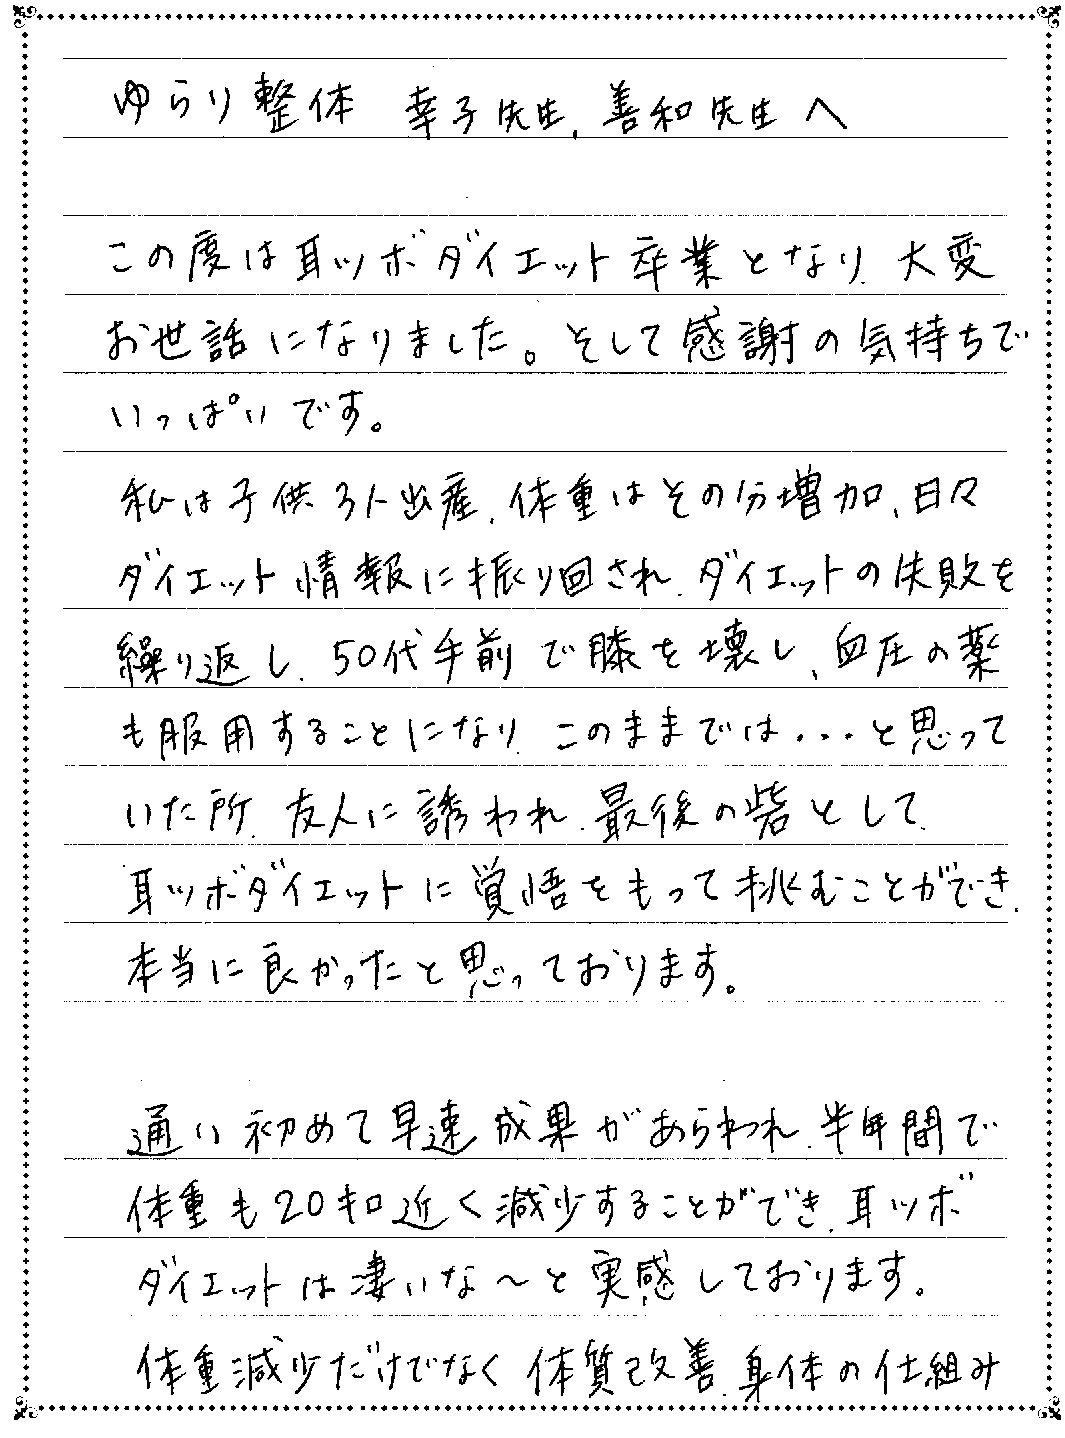 ゆらり整体 幸子先生、善和先生へ
この度は耳ツボダイエット卒業となり、大変
お世話になりました。そして感謝の気持ちで
いっぱいです。
私は子供3人出産、体重はその分増加、日々
ダイエット情報に振り回され、ダイエットの失敗を
繰り返し、50代手前で膝を壊し、血圧の薬
も服用することになり、このままでは...と思って
いた所、友人に誘われ、最後の砦として、
耳ツボダイエットに覚悟をもって挑むことができ、
本当に良かったと思っております。
通い初めて早速成果があらわれ、半年間で
体重も20キロ近く減少することができ、耳ツボ
ダイエットは凄いな~と実感しております。
体重減少だけでなく体質改善、身体の仕組み